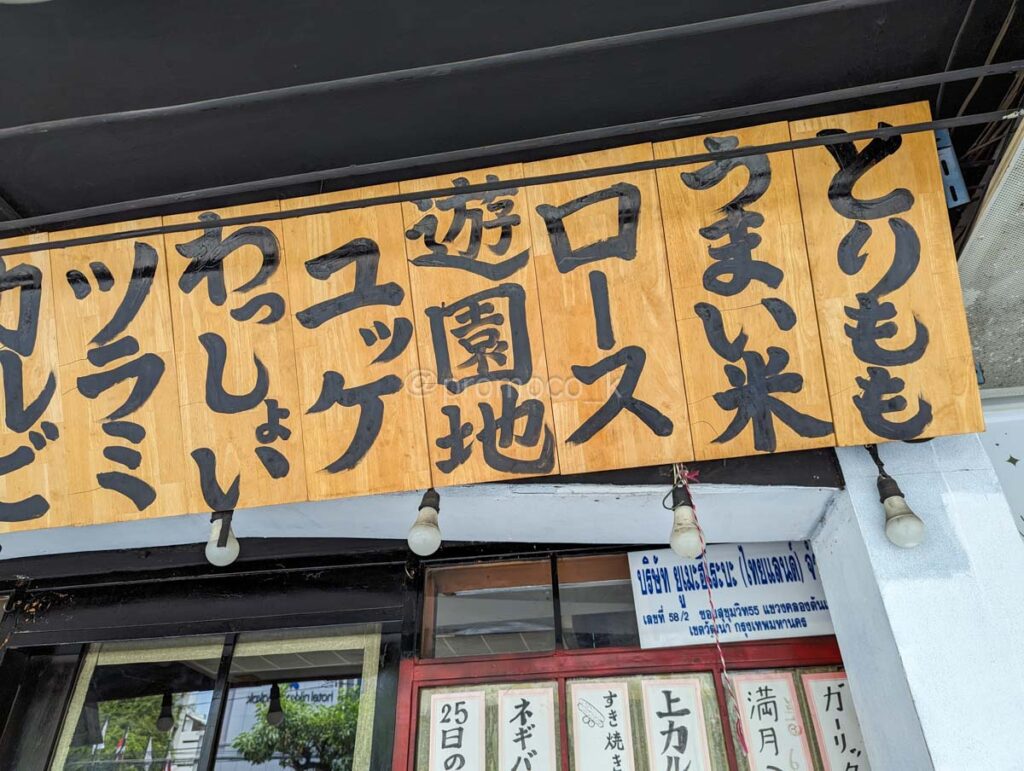 とりもも
うまい米
ロース
遊園地
ユッケ
わっしょい
ツラミ
カルビ
@promoco_k
บริษัท ยูเมะฮิเระบะ (ไทยแลนด์) จำ
เลขที่ 58/2 ซอยสุขุมวิท55 แขวงคลองตันเ
เขตวัฒนา กรุงเทพมหานคร
ガーリック
満月
上カル
すき焼き
ネギ
25日の